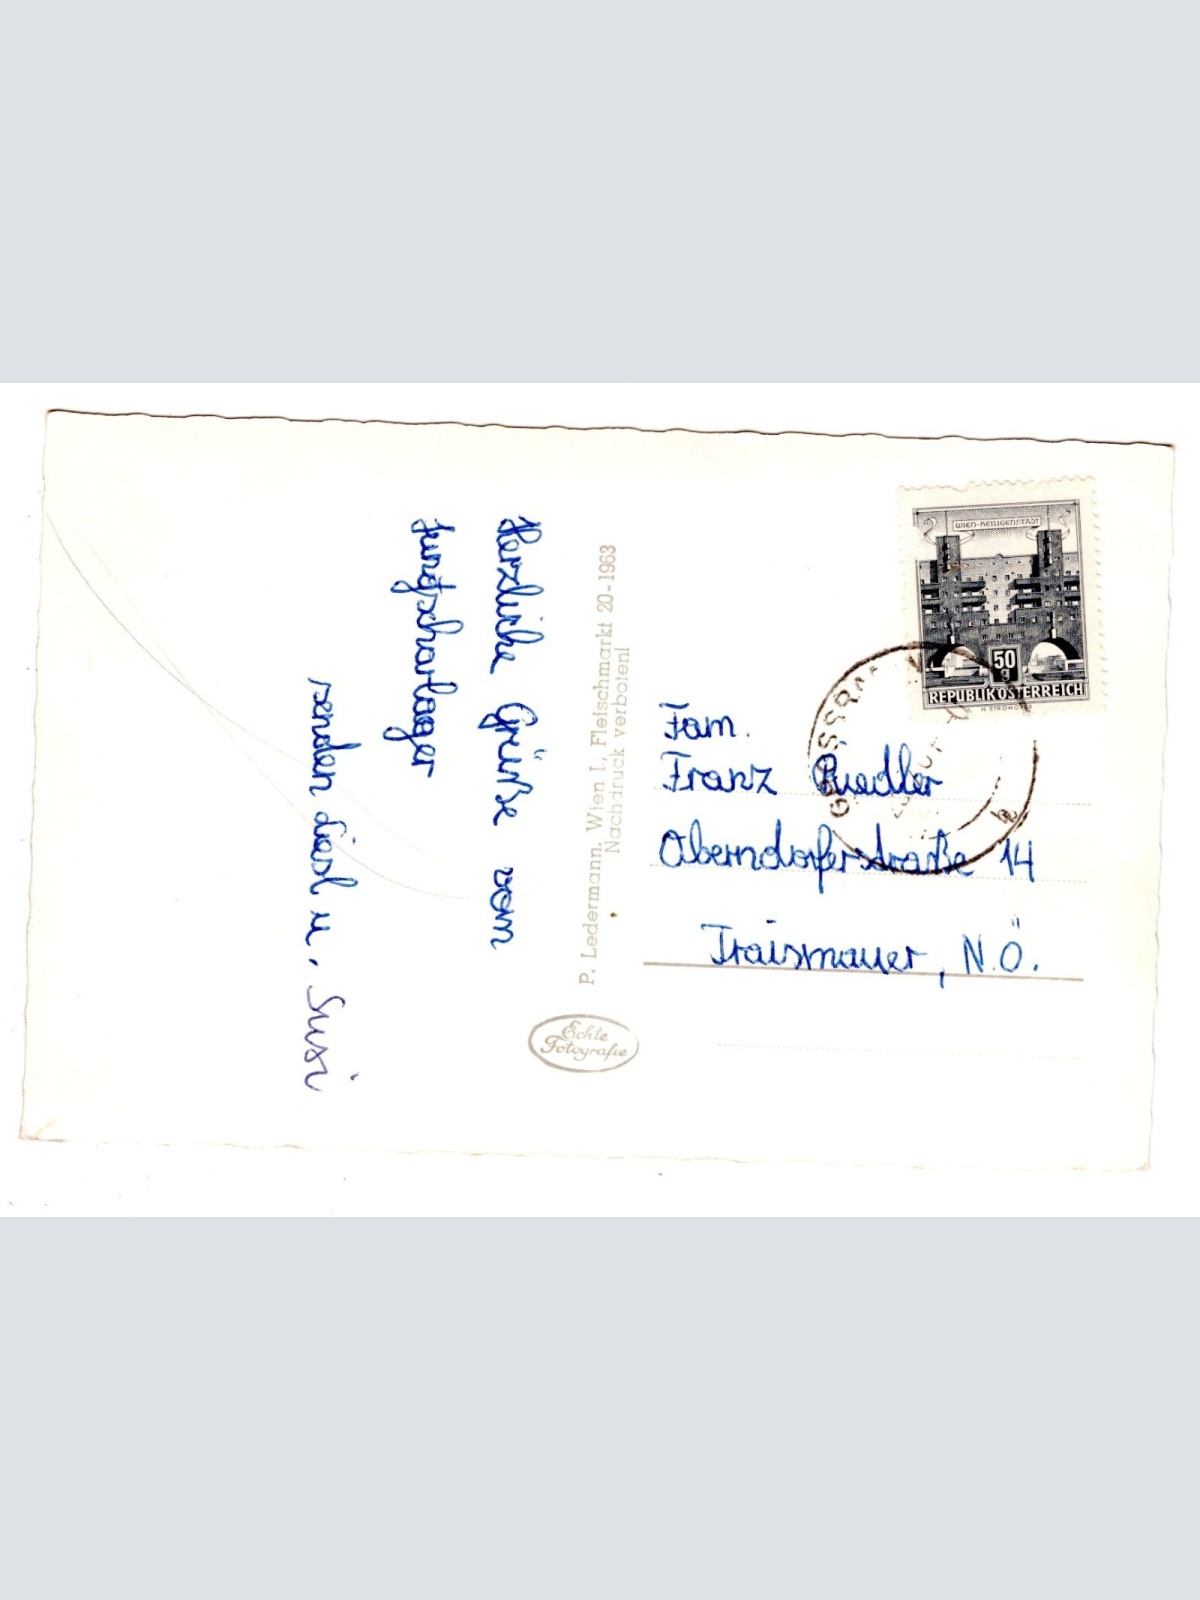 Herzliche Grüße vom
Jungscharlager
senden Liesl u. Susi
P. Ledermann, Wien I., Fleischmarkt 20-1963
Nachdruck verboten!
Echte
Fotografie
WIEN-HEILIGENSTADT
50
g
REPUBLIK ÖSTERREICH
Fam.
Franz Riedler
Oberndorferstraße 14
Traismauer, N.Ö.